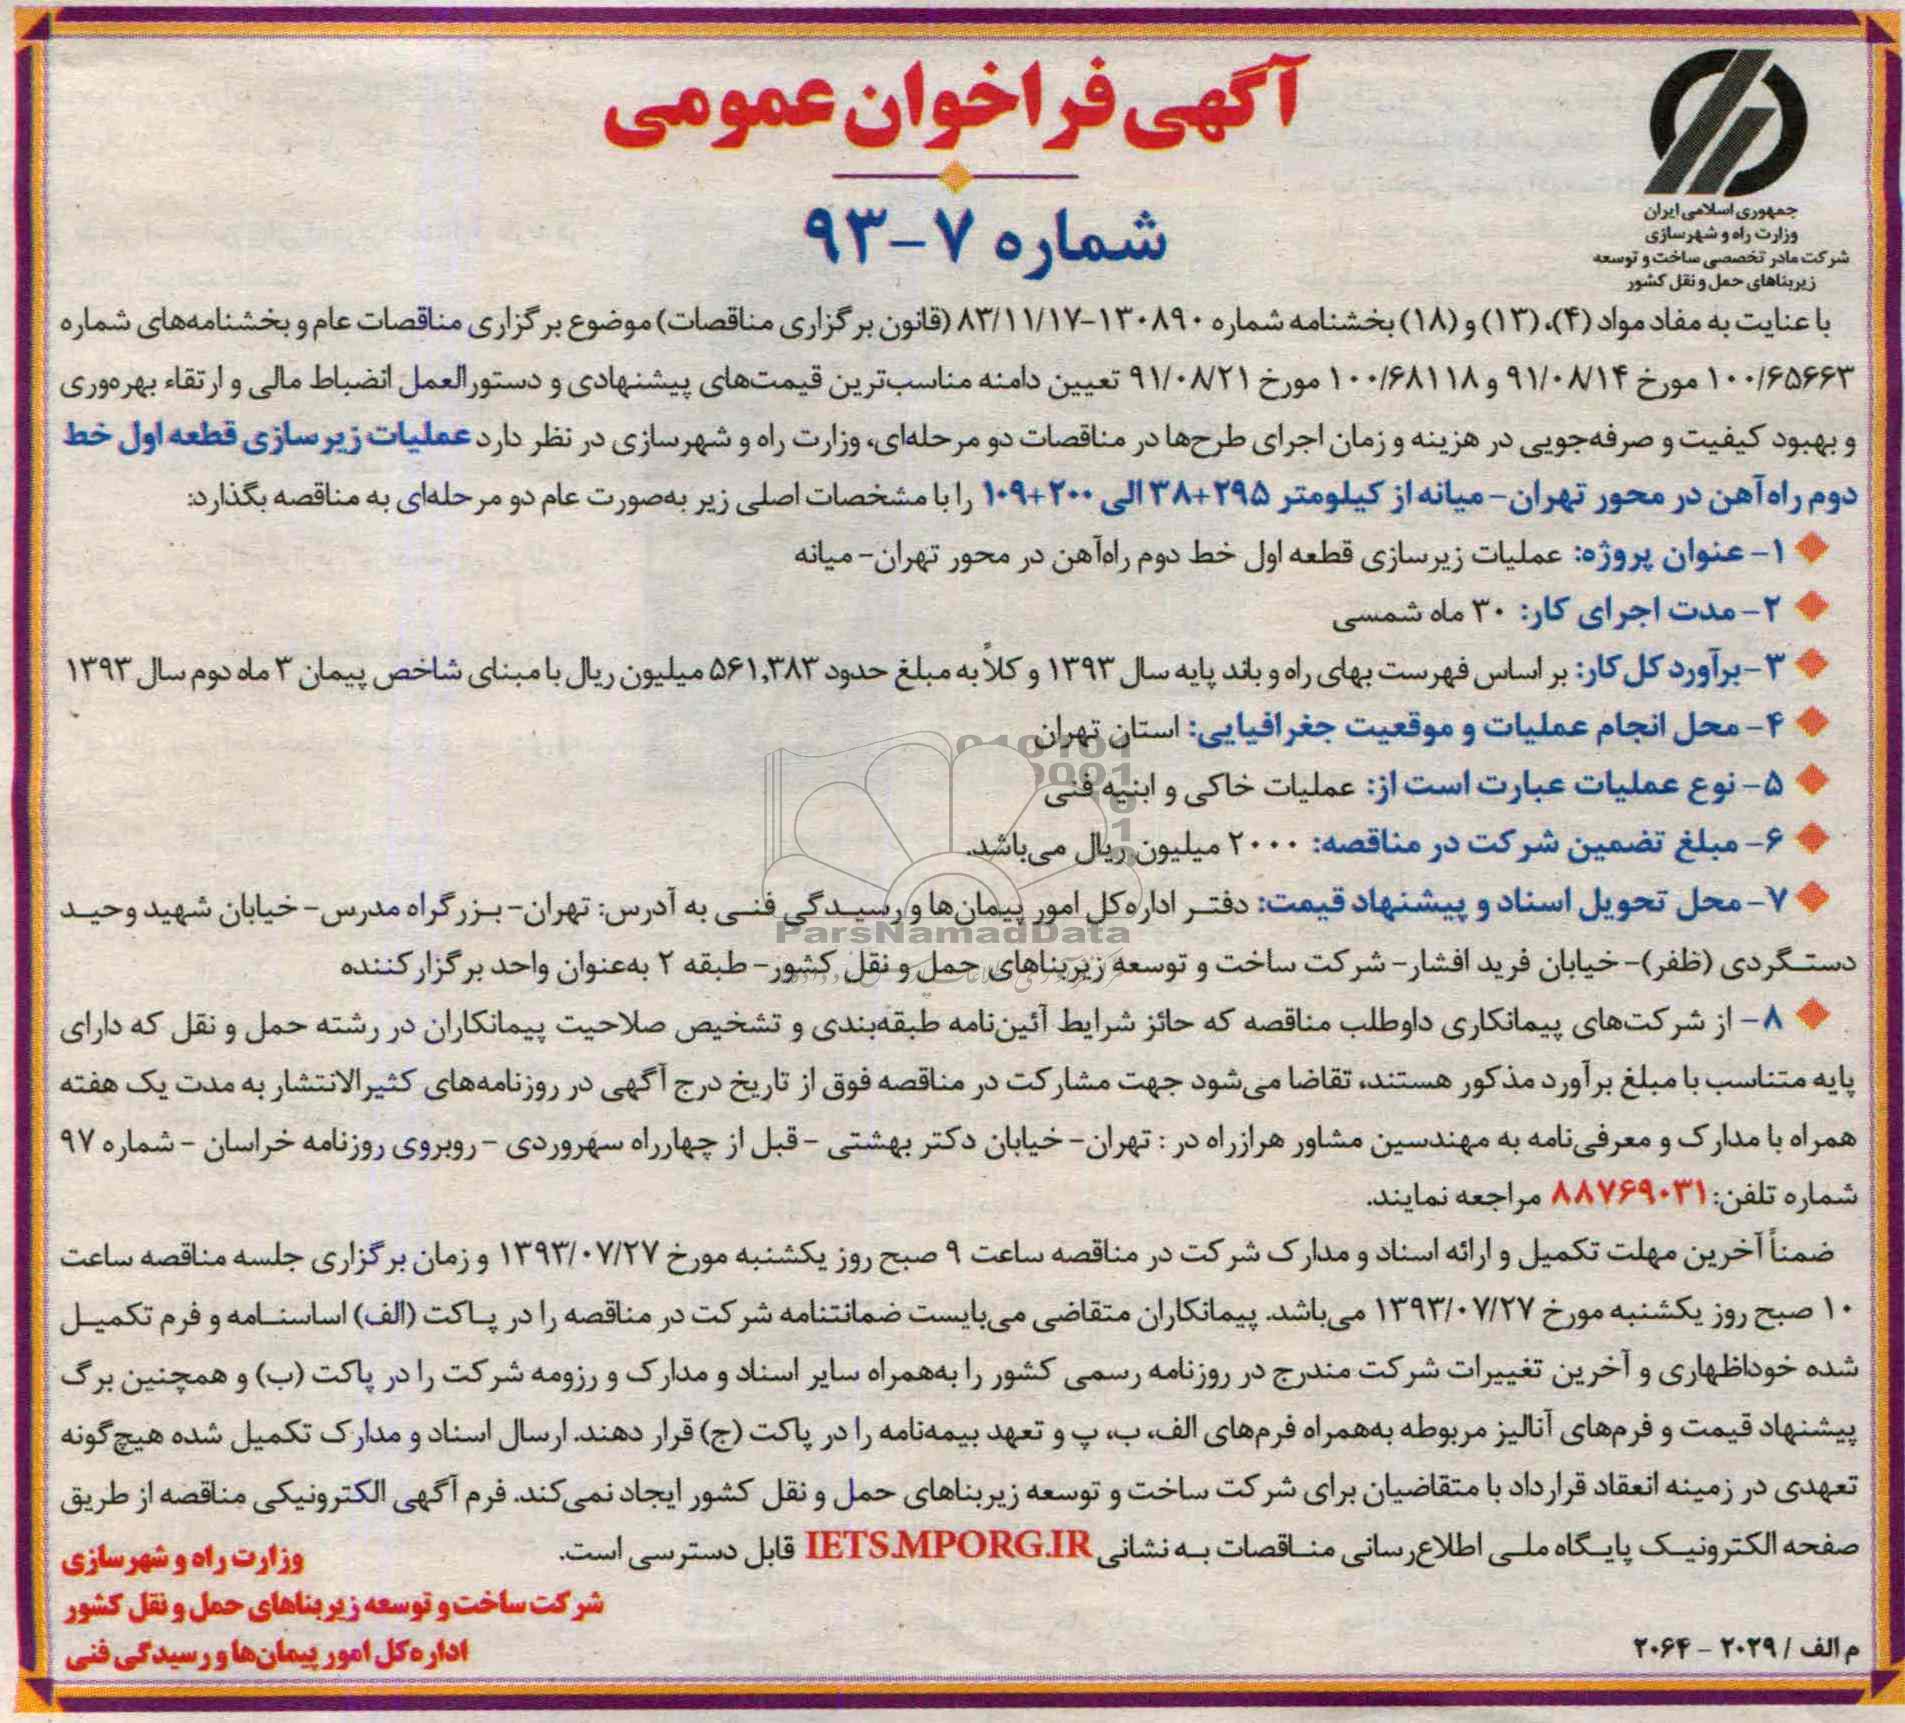 آگهی فراخوان عمومی
شماره ۷-۹۳
جمهوری اسلامی ایران
وزارت راه و شهرسازی
شرکت مادر تخصصی ساخت و توسعه
زیربناهای حمل و نقل کشور
با عنایت به مفاد مواد (۴)، (۱۳) و (۱۸) بخشنامه شماره ۱۳۰۸۹۰-۸۳/۱۱/۱۷ (قانون برگزاری مناقصات) موضوع برگزاری مناقصات عام و بخشنامه‌های شماره
۱۰۰/۶۵۶۶۳ مورخ ۹۱/۰۸/۱۴ و ۱۰۰/۶۸۱۱۸ مورخ ۹۱/۰۸/۲۱ تعیین دامنه مناسب‌ترین قیمت‌های پیشنهادی و دستورالعمل انضباط مالی و ارتقاء بهره‌وری
و بهبود کیفیت و صرفه‌جویی در هزینه و زمان اجرای طرح‌ها در مناقصات دو مرحله‌ای، وزارت راه و شهرسازی در نظر دارد عملیات زیرسازی قطعه اول خط
دوم راه‌آهن در محور تهران- میانه از کیلومتر ۲۹۵+۳۸ الی ۲۰۰+۱۰۹ را با مشخصات اصلی زیر به‌صورت عام دو مرحله‌ای به مناقصه بگذارد:
۱- عنوان پروژه: عملیات زیرسازی قطعه اول خط دوم راه‌آهن در محور تهران- میانه
۲- مدت اجرای کار: ۳۰ ماه شمسی
۳- برآورد کل کار: بر اساس فهرست بهای راه و باند پایه سال ۱۳۹۳ و کلاً به مبلغ حدود ۵۶۱,۳۸۳ میلیون ریال با مبنای شاخص پیمان ۳ ماه دوم سال ۱۳۹۳
۴- محل انجام عملیات و موقعیت جغرافیایی: استان تهران
۵- نوع عملیات عبارت است از: عملیات خاکی و ابنیه فنی
۶- مبلغ تضمین شرکت در مناقصه: ۲۰۰۰ میلیون ریال می‌باشد.
۷- محل تحویل اسناد و پیشنهاد قیمت: دفتر اداره‌کل امور پیمان‌ها و رسیدگی فنی به آدرس: تهران- بزرگراه مدرس- خیابان شهید وحید
ParsNamadData
دستگردی (ظفر)- خیابان فرید افشار- شرکت ساخت و توسعه زیربناهای حمل و نقل کشور- طبقه ۲ به‌عنوان واحد برگزارکننده
۸- از شرکت‌های پیمانکاری داوطلب مناقصه که حائز شرایط آئین‌نامه طبقه‌بندی و تشخیص صلاحیت پیمانکاران در رشته حمل و نقل که دارای
پایه متناسب با مبلغ برآورد مذکور هستند، تقاضا می‌شود جهت مشارکت در مناقصه فوق از تاریخ درج آگهی در روزنامه‌های کثیرالانتشار به مدت یک هفته
همراه با مدارک و معرفی‌نامه به مهندسین مشاور هرازراه در : تهران- خیابان دکتر بهشتی - قبل از چهارراه سهروردی - روبروی روزنامه خراسان - شماره ۹۷
شماره تلفن: ۸۸۷۶۹۰۳۱ مراجعه نمایند.
ضمناً آخرین مهلت تکمیل و ارائه اسناد و مدارک شرکت در مناقصه ساعت ۹ صبح روز یکشنبه مورخ ۱۳۹۳/۰۷/۲۷ و زمان برگزاری جلسه مناقصه ساعت
۱۰ صبح روز یکشنبه مورخ ۱۳۹۳/۰۷/۲۷ می‌باشد. پیمانکاران متقاضی می‌بایست ضمانتنامه شرکت در مناقصه را در پاکت (الف) اساسنامه و فرم تکمیل
شده خوداظهاری و آخرین تغییرات شرکت مندرج در روزنامه رسمی کشور را به‌همراه سایر اسناد و مدارک و رزومه شرکت را در پاکت (ب) و همچنین برگ
پیشنهاد قیمت و فرم‌های آنالیز مربوطه به‌همراه فرم‌های الف، ب، پ و تعهد بیمه‌نامه را در پاکت (ج) قرار دهند. ارسال اسناد و مدارک تکمیل شده هیچ‌گونه
تعهدی در زمینه انعقاد قرارداد با متقاضیان برای شرکت ساخت و توسعه زیربناهای حمل و نقل کشور ایجاد نمی‌کند. فرم آگهی الکترونیکی مناقصه از طریق
صفحه الکترونیک پایگاه ملی اطلاع‌رسانی مناقصات به نشانی IETS.MPORG.IR قابل دسترسی است.
وزارت راه و شهرسازی
شرکت ساخت و توسعه زیربناهای حمل و نقل کشور
اداره‌کل امور پیمان‌ها و رسیدگی فنی
م الف / ۲۰۲۹ - ۲۰۶۴